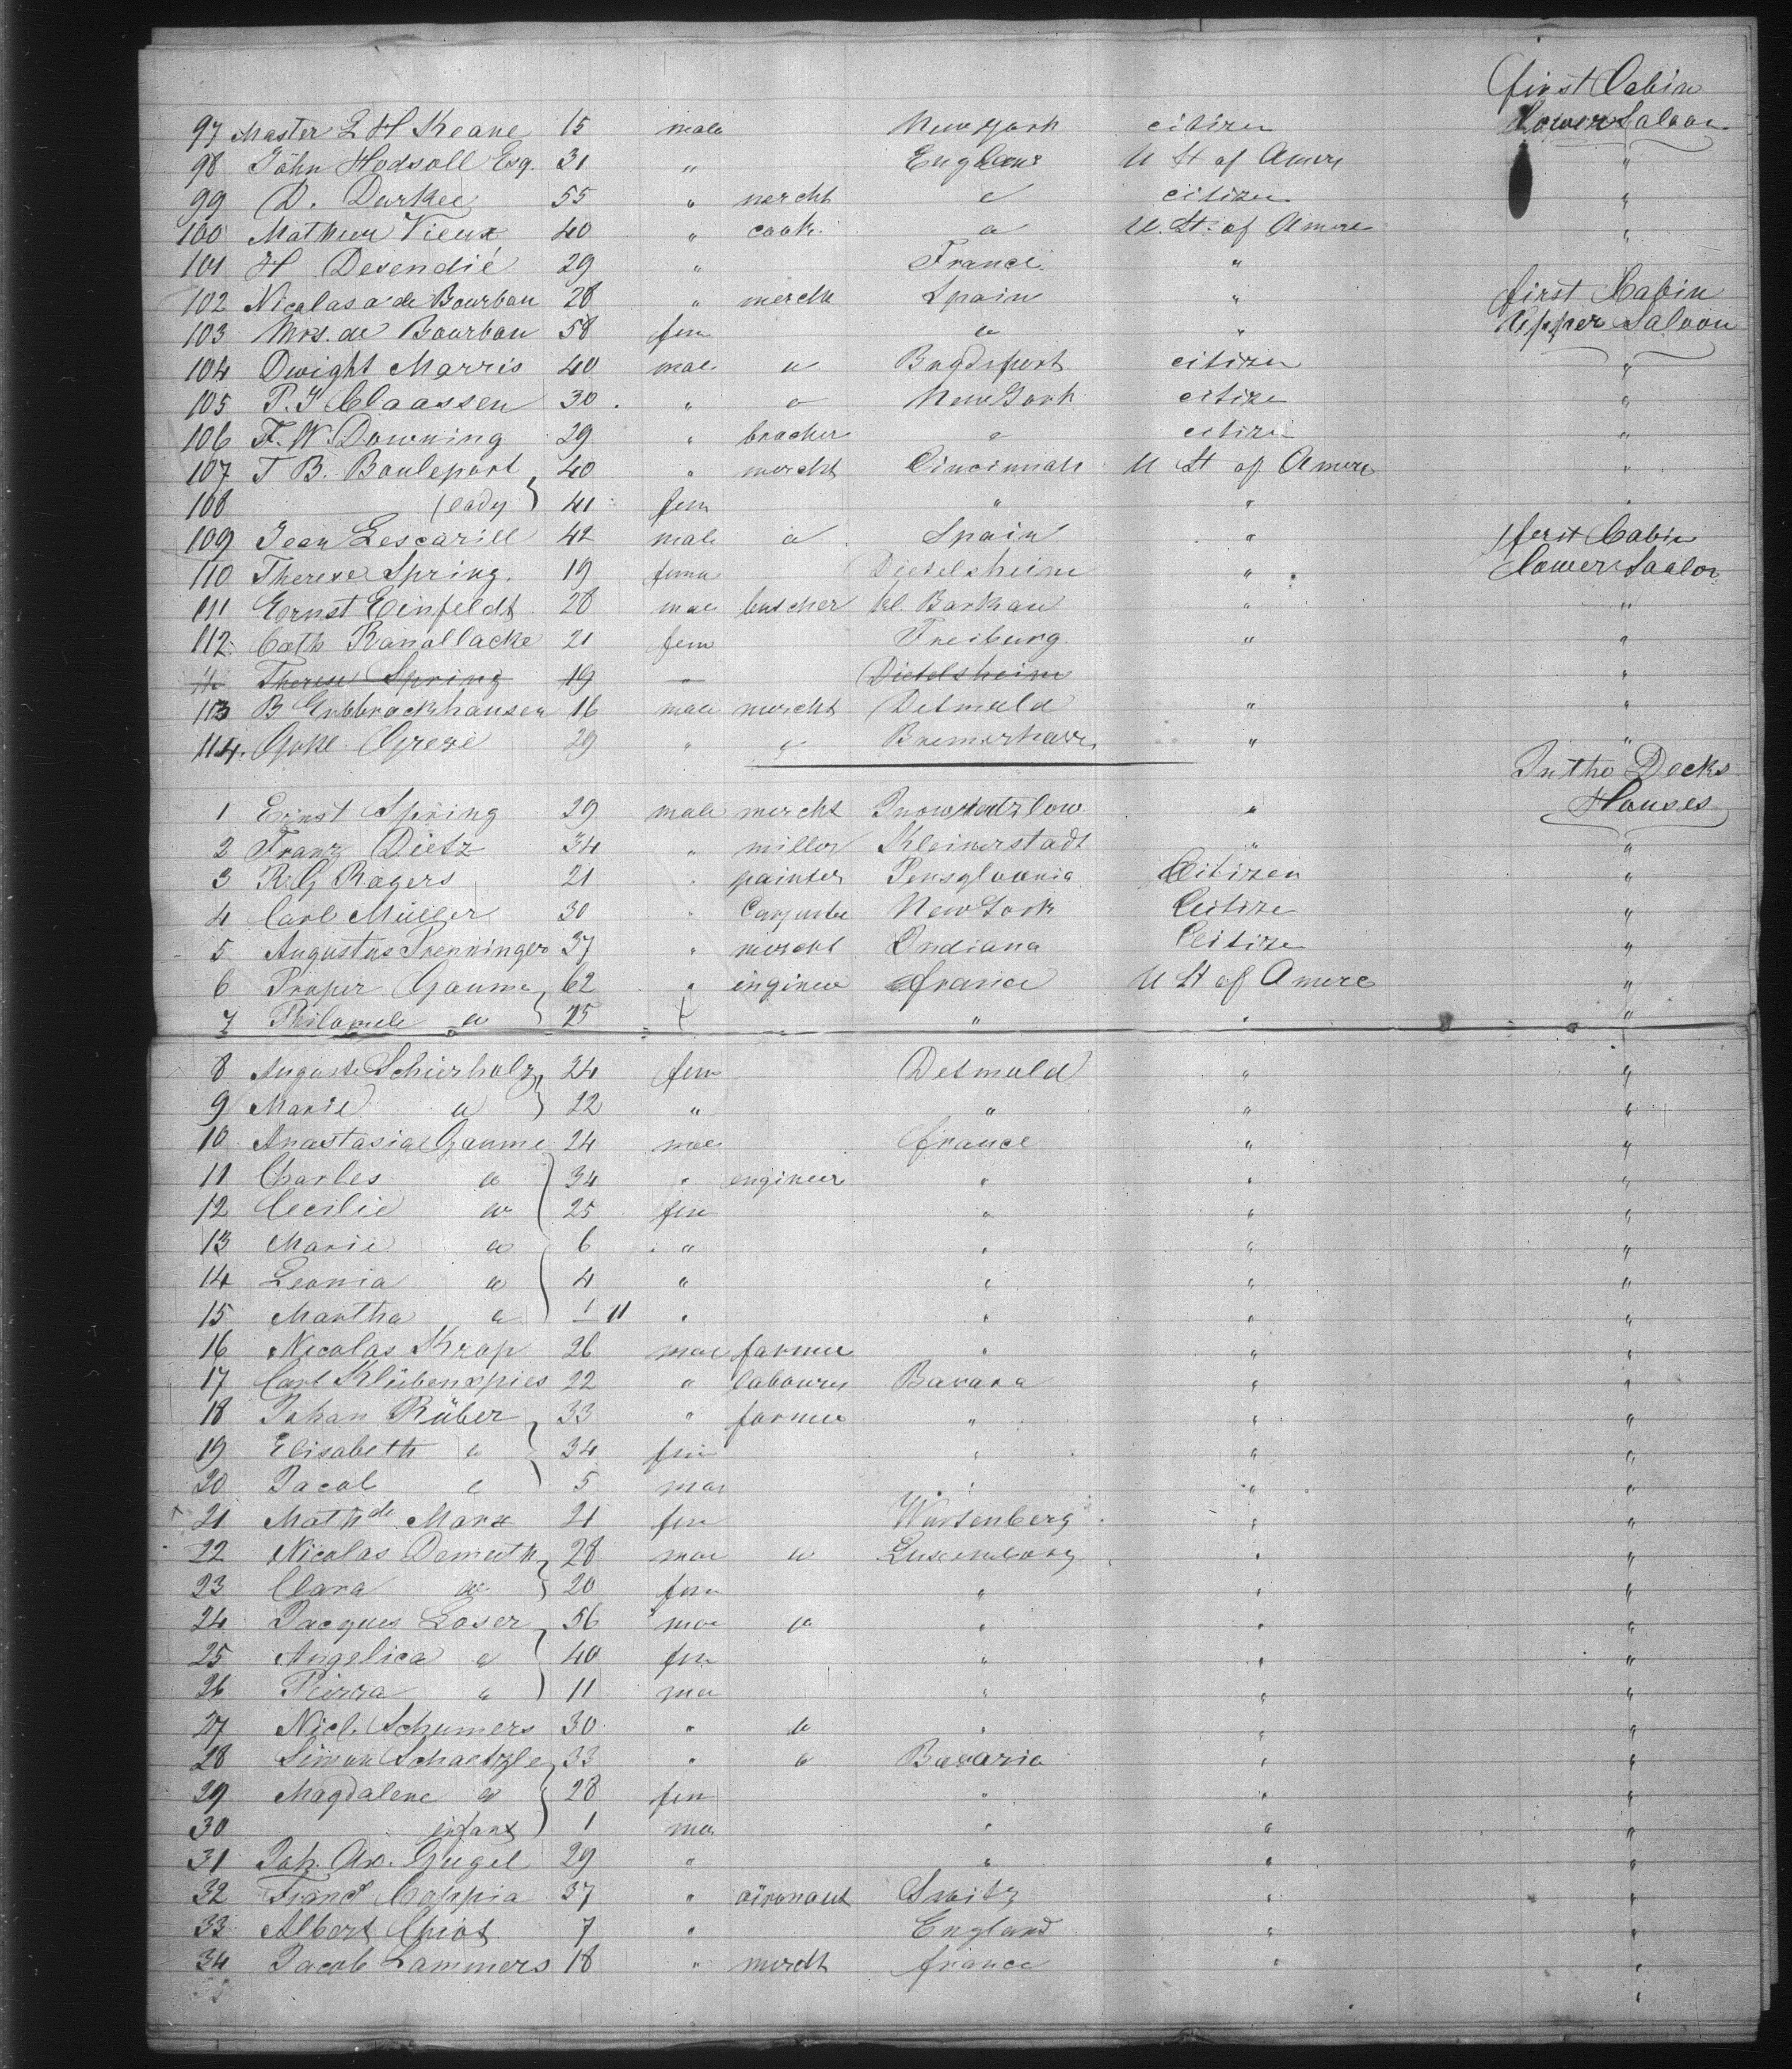 first Cabin
97 Master L H Keane 15 male New York citizen Lower Saloon
98 John Hodsoll Esq. 31 " England U St of Amere "
99 D. Durkee 55 " mercht " citizen "
100 Mathieu Vieux 40 " cook " U. St. of Amere "
101 H Desendié 29 " France "
102 Nicolas a de Bourbon 28 " merch Spain " first Cabin
103 Mrs. de Bourbon 58 fem " " Upper Saloon
104 Dwight Marris 40 male " Bridgeport citizen "
105 P. J Claassen 30 " " New York citize "
106 F. W. Downing 29 " brocker " citize "
107 T B. Bouleport 40 " mercht Cincinnati U St of Amere "
108 (lady 41 fem " " "
109 Jean Lescarill 42 male " Spain " first Cabin
110 Therese Spring. 19 fema Dietelsheim " Lower Saalon
111 Ernst Einfeldt 28 mae butscher kl. Barkau " "
112 Cath Ranallacke 21 fem Freiburg " "
Therese Spring 19 " Dietelsheim "
113 B Grabbrockhausen 16 male mercht Detmold " "
114. Grexe 29 " " Bremerhave " "
In the Decks
1 Ernst Spring 29 male mercht " Houses
2 Franz Dietz 34 " miller Kleinerstadt " "
3 R. G Rogers 21 " painter Pensylvania Citizen "
4 Carl Müller 30 " Carpenter New York Citize "
5 Augustus Prenninger 37 " mercht Indiana Citize "
6 Proper Gaume 62 " engineer france U St of Amere "
7 Philomele " 25 " " " "
8 Auguste Schierholz 24 fem Detmold " "
9 Marie " 22 " " " "
10 Anastasia Gaume 24 mae france " "
11 Charles " 34 " engineer " " "
12 Cecilie " 25 fem " " "
13 Marie " 6 " " " "
14 Leonia " 4 " " " "
15 Martha " 1 11 " " " "
16 Nicolas Krop 26 mae farmer " " "
17 Carl Klübenspies 22 " labourer Bavara " "
18 Johan Rüber 33 " farmer " " "
19 Elisabeth " 34 fem " " "
20 Jacob " 5 mae " " "
21 Mathde Marx 21 fem Würtenberg " "
22 Nicolas Demuth 28 mae " Luxemburg " "
23 Clara " 20 fem " " "
24 Jacques Loser 56 mae " " " "
25 Angelica " 40 fem " " "
26 Pierra " 11 mae " " "
27 Nicl. Schumers 30 " " " " "
28 Simon Schaetzle 33 " " Bavaria " "
29 Magdalene " 28 fem " " "
30 infant 1 mae " " "
31 Joh. And. Gugel 29 " " " "
32 Franc Cappia 37 " aironaut Switz " "
33 Albert Chiot 7 " England " "
34 Jacob Lammers 18 " mercht france " "
"